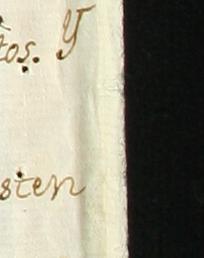 tos. Y
sten